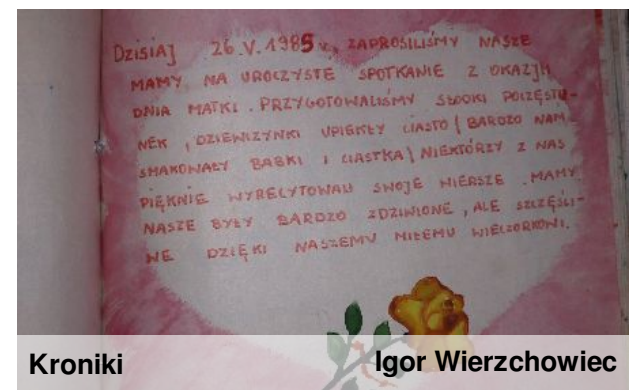 DZISIAJ 26.V.1985 r., ZAPROSILIŚMY NASZE
MAMY NA UROCZYSTE SPOTKANIE Z OKAZJI
DNIA MATKI. PRZYGOTOWALIŚMY SŁODKI POCZĘSTU-
NEK, DZIEWCZYNKI UPIEKŁY CIASTO (BARDZO NAM
SMAKOWAŁY BABKI I CIASTKA) NIEKTÓRZY Z NAS
PIĘKNIE WYRECYTOWALI SWOJE WIERSZE. MAMY
NASZE BYŁY BARDZO ZDZIWIONE, ALE SZCZĘŚLI-
WE DZIĘKI NASZEMU MIŁEMU WIECZORKOWI.
Kroniki
Igor Wierzchowiec